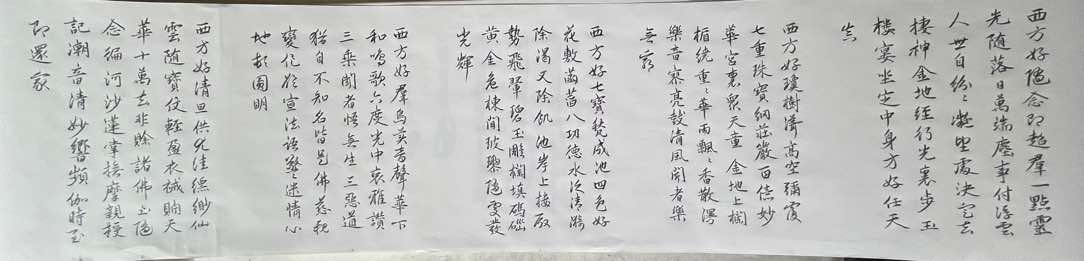 西方好隨念即超群一點靈
光隨落日萬端塵事付浮雲
人世自紛〻凝望處決定去
棲神金地經行光裏步玉
樓宴坐定中身方好任天
真
西方好瓊樹聳高空彌覆
七重珠寶網莊嚴百億妙
華宮裏眾天童金地上欄
楯繞重〻華雨飄〻香散漫
樂音寥亮鼓清風聞者樂
無窮
西方好七寶甃成池四色好
花敷菡萏八功德水泛清漪
除渴又除飢他岸上樓殿
勢飛翬碧玉雕欄填碼碯
黃金危棟間玻瓈隱雯發
光輝
西方好群鳥美音聲華下
和鳴歌六度光中哀雅讚
三乘聞者悟無生三惡道
猶自不知名皆是佛慈親
變化欲宣法語警迷情心
地頓圓明
西方好清旦供尤佳縹緲仙
雲隨寶仗輕盈衣裓貯天
華十萬去非賒諸佛土隨
念遍河沙蓮掌撫摩親授
記潮音清妙響頻伽時至
即還家